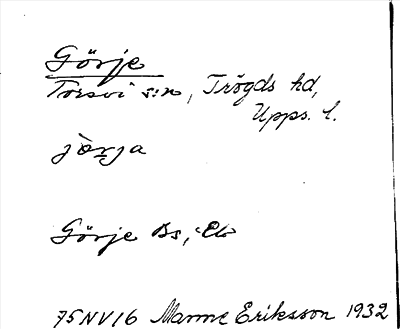 Görje
Torsvi s:n, Trögds hd,
Upps. l.
jö̀rja
Görje Bs, Eb
75NV16 Manne Eriksson 1932